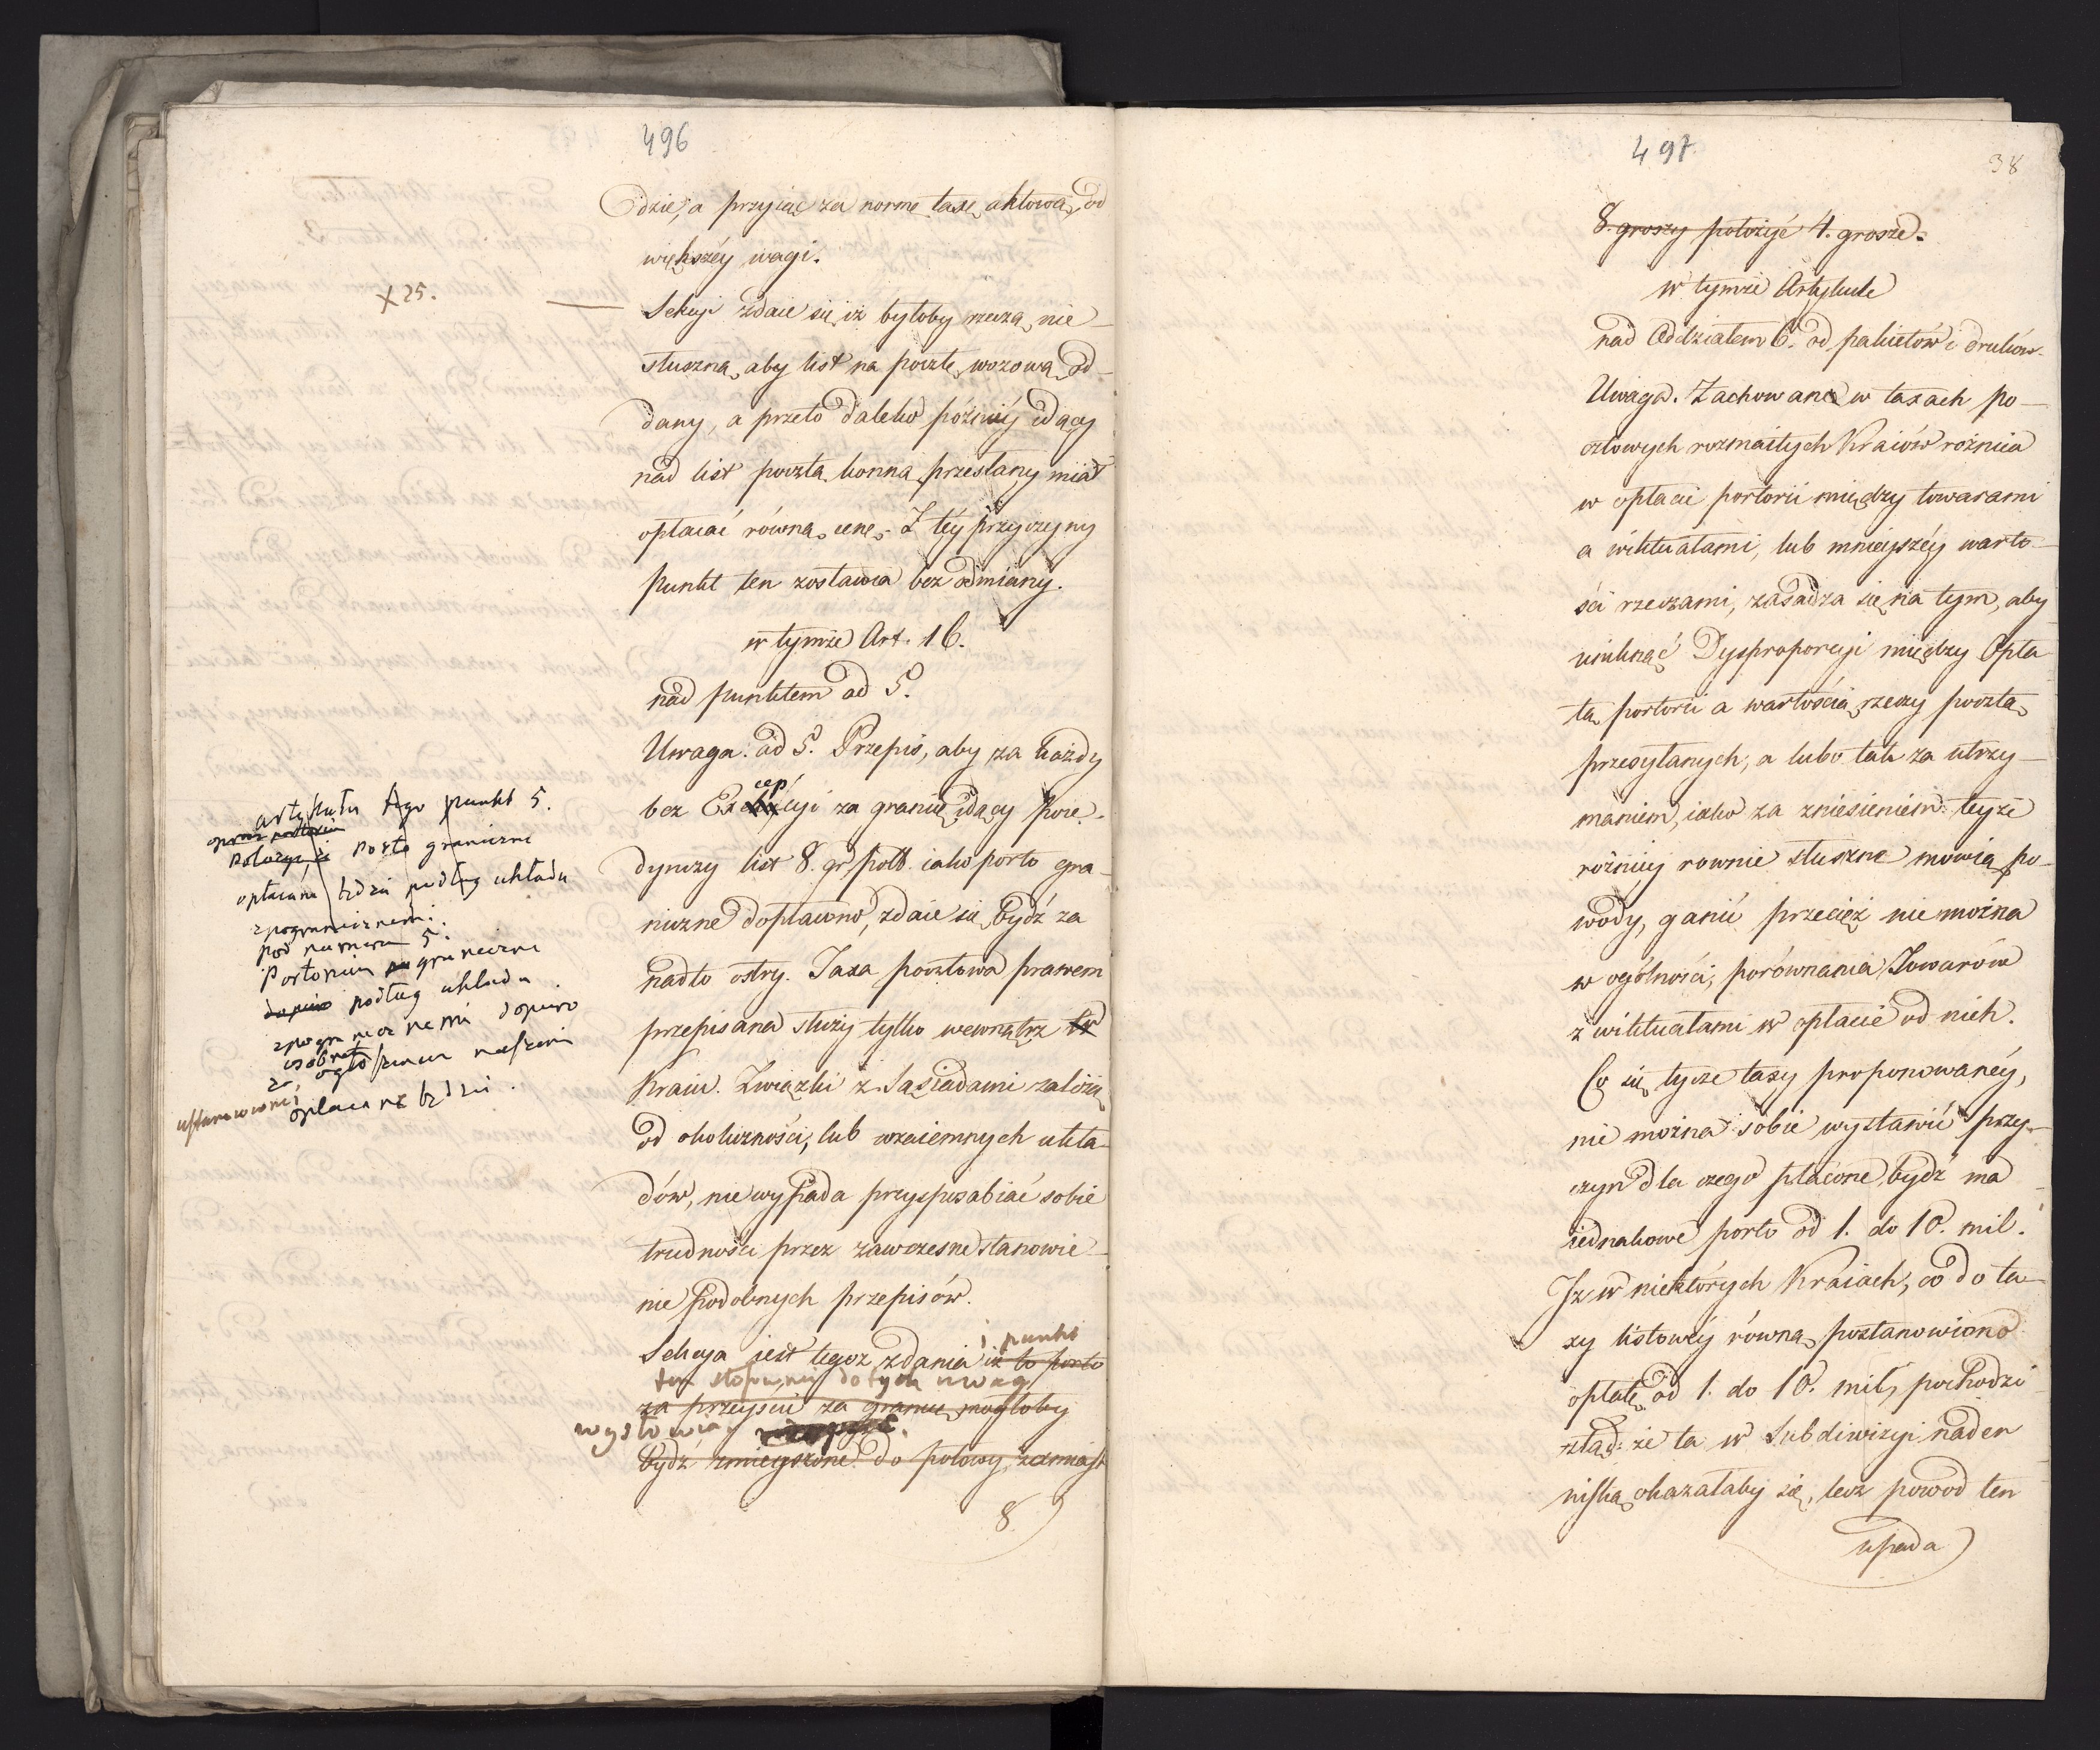 496
dzie, a przyiąć za normę taxę aktową od
większéy wagi.
X 25.
Sekcyi zdaie się iż byłoby rzeczą nie
słuszną, aby list na pocztę wozową od
dany, a przeto daleko późniéy idący
nad list pocztą konną przesłany miał
opłacać równą cenę. Z téy przyczyny
punkt ten zostawia bez odmiany.
w tymże Art. 16.
nad punktem ad 5.
Uwaga. ad 5. Przepis, aby za każdy
cep
bez Excepcyi za granicę idący poie-
dynczy list 8. gr. polk. iako porto gra-
niczne dopłacono, zdaie się bydź za
nadto ostry. Taxa pocztowa prawem
przepisana służy tylko wewnątrz
Kraiu. Związki z Sąsiadami zależą
od okoliczności, lub wzaiemnych ukła-
dów, nie wypada przysposabiać sobie
trudności przez zawczesne stanowie-
nie podobnych przepisów.
Sekcya jest tegoż zdania iż to porto
i punkt
ten stosownie do tych uwag
za przeyście za granicę mogłoby
wystawia
bydź zmieyszone do połowy, zamiast
8
artykułu tego punkt 5.
Położyć, iż Porto graniczne
opłacane będzie podług układu
z pogranicznemi.
pod numerem 5.
Portorium graniczne
podług układu
z pogranicznemi dopiero
za ogłoszeniem
ustanowione
opłacane będzie.
497
38
8. groszy położyć 4. grosze.
w tymże Artykule
nad Oddziałem 6. od pakietów i druków.
Uwaga. Zachowana w taxach po-
cztowych rozmaitych Kraiów różnica
w opłacie portorii między towarami
a wiktuałami, lub mnieyszéy warto-
ści rzeczami, zasadza się na tym, aby
uniknąć Dysproporcyi między Opła
tą portorii a wartością rzeczy pocztą
przesyłanych, a lubo tak za utrzy-
maniem, iako za zniesieniem teyże
różnicy rownie słuszne mowią po-
wody, ganić przecież nie można
w ogólności, porównania Towarów
z wiktuałami w opłacie od nich.
Co się tycze taxy proponowanéy,
nie można sobie wystawić przy-
czyn dla czego płacone bydź ma
iednakowe porto od 1. do 10. mil.
Iż w niektórych Kraiach, co do ta-
xy listowéy równą postanowiono
opłatę od 1. do 10. mil, pochodzi
ztąd: że ta w Subdiwizyi nader
niską okazałaby się, lecz powod ten
upada